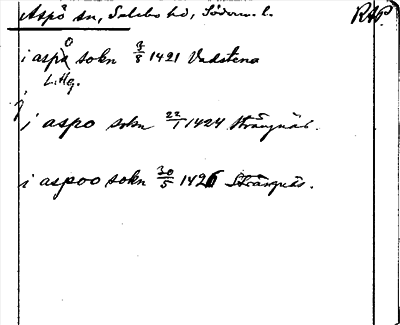 Aspö sn, Selebo hd, Söderm. l. RAP.
i aspo sokn 3/8 1421 Vadstena
L. Hg.
i aspo sokn 22/1 1424 Strängnäs.
i aspoo sokn 30/5 1426 Strängnäs.